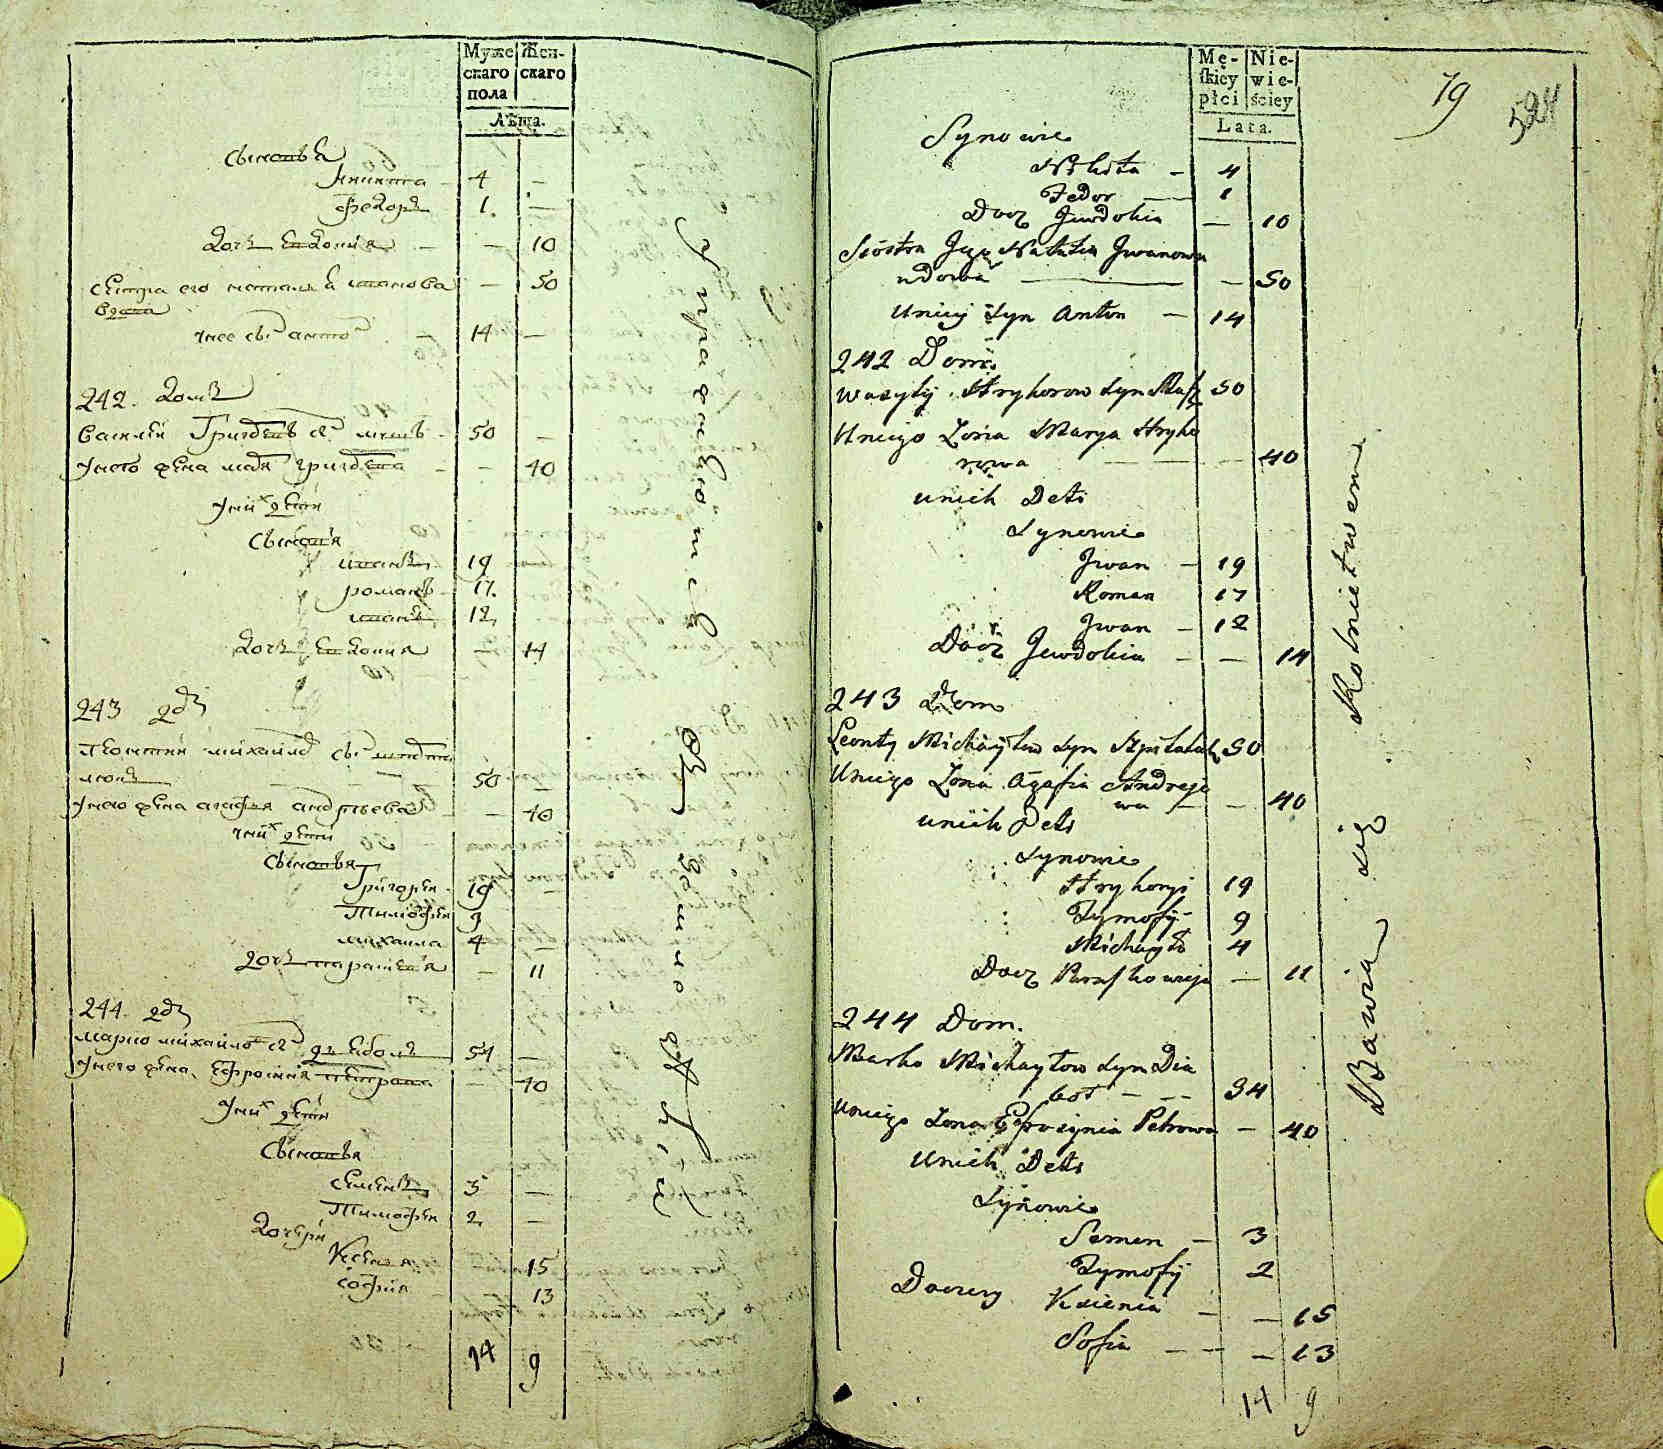 Муже
скаго
пола
Жен-
скаго
Лѣта.
Сыновья
Никита - 4 -
Федоръ 1. -
Дочь Евдокия - - 10
Сестра его наталья иванова - 50
вдова
у нее сынъ антонъ - 14 -
242. домъ
Василий Григорьевъ сынъ 50 -
У него жена марья григорьева - - 40
У них дети
Сыновья
иванъ 19
романъ 17.
иванъ 12,
дочь Евдокия - 14
243 дом
Леонтий михайловъ сынъ
50 -
У него жена агафья андреева - - 40
у них дети
Сыновья
Григорей - 19 -
Тимофей 9
михаила 4 -
дочь парасковья - 11
244. дом
Марко михайловъ сынъ дьяболъ 54 -
У него жена Ефросиния петрова - 40
У них дети
Сыновья
Семенъ 3 -
Тимофей 2, -
Дочери
Ксения 15
софия 13
14 9
упражняются
в
Mę-
skiey
płci
Nie-
wie-
ściey
Lata.
79
524
Synowie
Nikita - 4
Fedor - 1
Docz Jewdokia - 10
Siostra Jego Natalia Jwanowa
wdowa - - 50
Uniey Syn Anton - 14
242 Dom.
Wasyly Hryhorow Syn 50
Uniego Żona Marya Hryho
rowa - - 40
unich Deti
Synowie
Jwan - 19
Roman 17
Jwan - 12
Docz Jewdokia - - 14
243 Dom
Leonty Michayłow Syn 50
Uniego Żona Agafia Andreje
wa - - 40
unich Deti
Synowie
Hryhory 19
Tymofy - 9
Michayło 4
Docz Paraskowieja - 11
244 Dom.
Marko Michayłow Syn Dia
boł - - 34
Uniego Żona Efrozynia Petrowa - 40
Unich Deti
Synowie
Semen - 3
Tymofy 2
Doczery Ksienia - - 15
Sofia - - - 13
14 9
Bawią się Rolnictwem